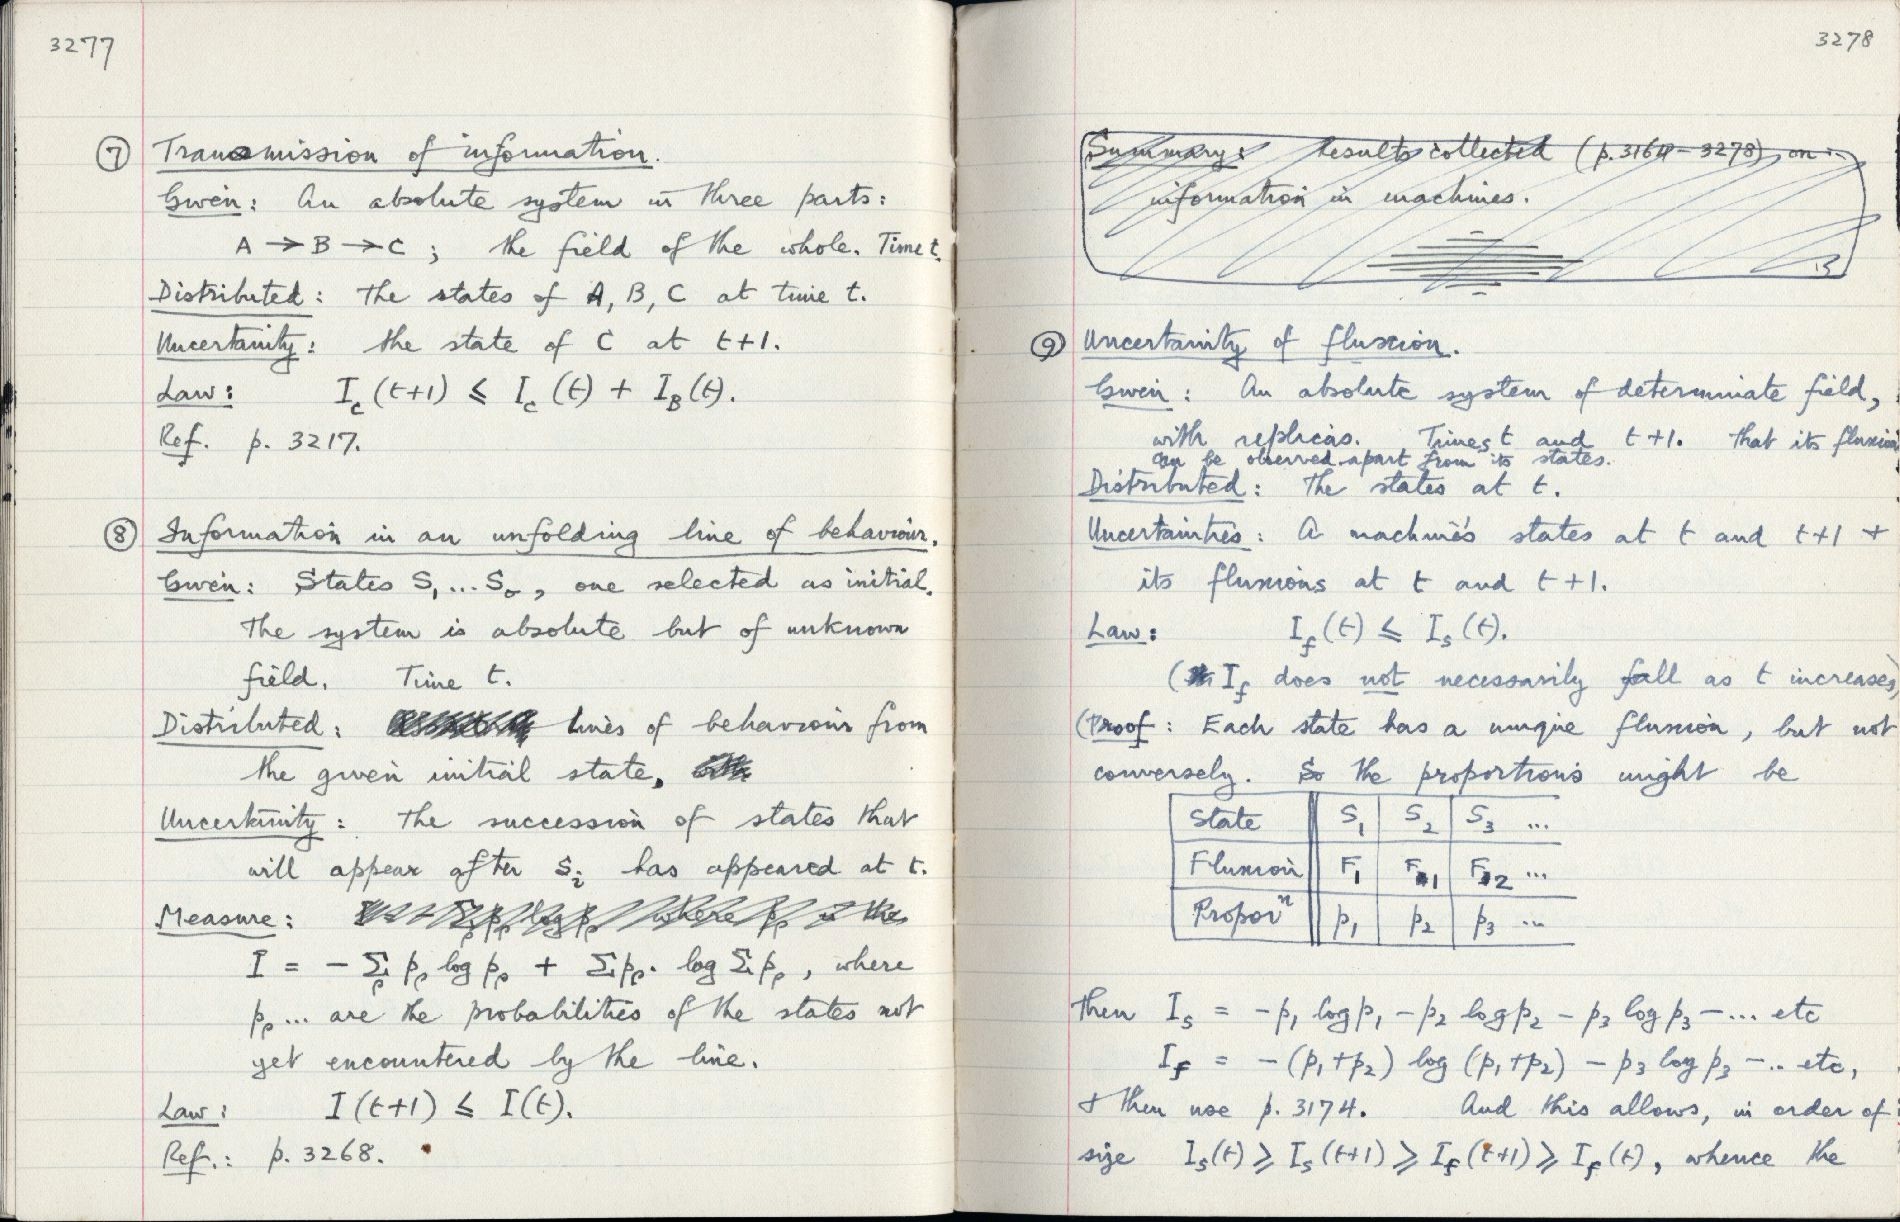 3277
⑦ Transmission of information.
Given: An absolute system in three parts:
A → B → C ; the field of the whole. Time t.
Distributed: The states of A, B, C at time t.
Uncertainty: the state of C at t+1.
Law: I_c (t+1) ≤ I_c (t) + I_B (t).
Ref. p. 3217.
⑧ Information in an unfolding line of behaviour.
Given: States S₁ ... Sσ, one selected as initial.
The system is absolute but of unknown
field. Time t.
Distributed: lines of behaviour from
the given initial state,
Uncertainty: The succession of states that
will appear after S_i has appeared at t.
Measure: - Σ p_ρ log p_ρ where p_ρ is the
I = - Σ_ρ p_ρ log p_ρ + Σ p_ρ . log Σ p_ρ , where
p_ρ ... are the probabilities of the states not
yet encountered by the line.
Law: I (t+1) ≤ I (t).
Ref.: p. 3268.
3278
Summary: Results collected (p. 3164 - 3278) on
information in machines.
⑨ Uncertainty of fluxion.
Given: An absolute system of determinate field,
with replicas. Times t and t+1. That its fluxion
can be observed apart from its states.
Distributed: The states at t.
Uncertainties: A machine's states at t and t+1 +
its fluxions at t and t+1.
Law: I_f (t) ≤ I_s (t).
( I_f does not necessarily fall as t increases)
(Proof: Each state has a unique fluxion, but not
conversely. So the proportions might be
State S₁ S₂ S₃ ...
Fluxion F₁ F₁ F₂ ...
Proporⁿ p₁ p₂ p₃ ...
Then I_s = -p₁ log p₁ - p₂ log p₂ - p₃ log p₃ - ... etc
I_f = - (p₁+p₂) log (p₁+p₂) - p₃ log p₃ - .. etc,
+ then use p. 3174. And this allows, in order of
size I_s(t) ≥ I_s (t+1) ≥ I_f (t+1) ≥ I_f (t), whence the